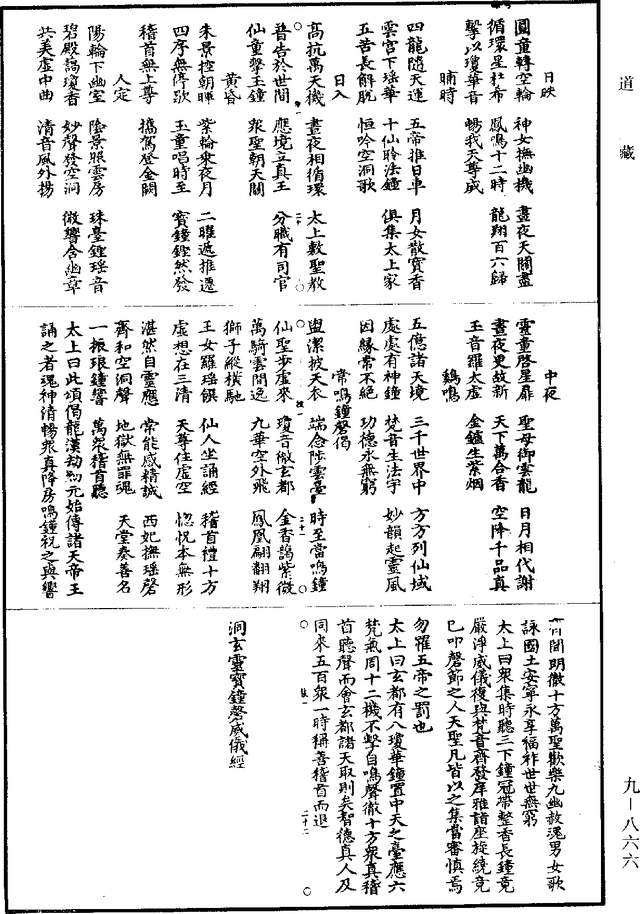 道藏
日昳
圓童轉空輪　神女撫幽機　晝夜天關盡
循環星杜希　鳳鳴十二時　龍翔百六歸
擊以瓊華音　暢我天尊威
晡時
四龍隨天運　五帝推日車　月女散寶香
雲宮下瑶華　十仙聆法鐘　俱集太上家
五苦長解脫　恒吟空洞歌
日入
高抗萬天機　晝夜相循環　太上敷聖教
普告於世間　應境立真王　分職有司官
仙童擊玉鐘　衆聖朝天關
黄昏
朱景控朝暉　紫輪乘夜月　二曜遞推遷
四序無停歇　玉童唱時至　寶鐘鏗然發
稽首無上尊　攜駕登金闕
人定
陽輪下幽室　陰景照雲房　珠臺鏗瑶音
碧殿謁瓊香　妙聲發空洞　微響含幽章
共美虛中曲　清音風外揚
中夜
靈童啓星扉　聖母御雲龍　日月相代謝
晝夜更故新　天下萬合香　空降千品真
玉音羅太虛　金鑪生紫烟
鷄鳴
五億諸天境　三千世界中　方方列仙域
處處有神鐘　梵音生法宇　妙韻起靈風
因緣常不絕　功德永無窮
常鳴鐘磬偈
盥潔披天衣　端念陟雲臺　時至當鳴鐘
仙聖步虛來　瓊音徹玄都　金香謁紫微
萬騎雲間逸　九華空外飛　鳳凰翩翻翔
獅子縱横馳
玉女羅瑶饌　仙人坐誦經　稽首禮十方
虛想在三清　天尊住虛空　惚怳本無形
湛然自靈應　常能感精誠　西妃撫瑶磬
齊和空洞聲　地獄無罪魂　天堂奏善名
一振琅鐘響　萬衆稽首聽
太上曰此頌偈龍漢劫初元始傳諸天帝王
誦之者魂神清暢衆真降房鳴鐘祝之與響
間明徹十方萬聖歡樂九幽赦魂男女歌
詠國土安寧永享福祚世世無窮
太上曰衆集時聽三下鐘冠帶整香長鐘竟
嚴淨威儀復與梵音齊發庠雅諸座旋繞竟
已叩磬節之人天聖凡皆以之集當審慎焉
勿罹五帝之罰也
太上曰玄都有八瓊華鐘置中天之臺應六
梵氣周十二機不擊自鳴聲徹十方衆真稽
首聽聲而會玄都諸天取則矣智德真人及
同來五百衆一時稱善稽首而退
洞玄靈寶鐘磬威儀經
九－八六六